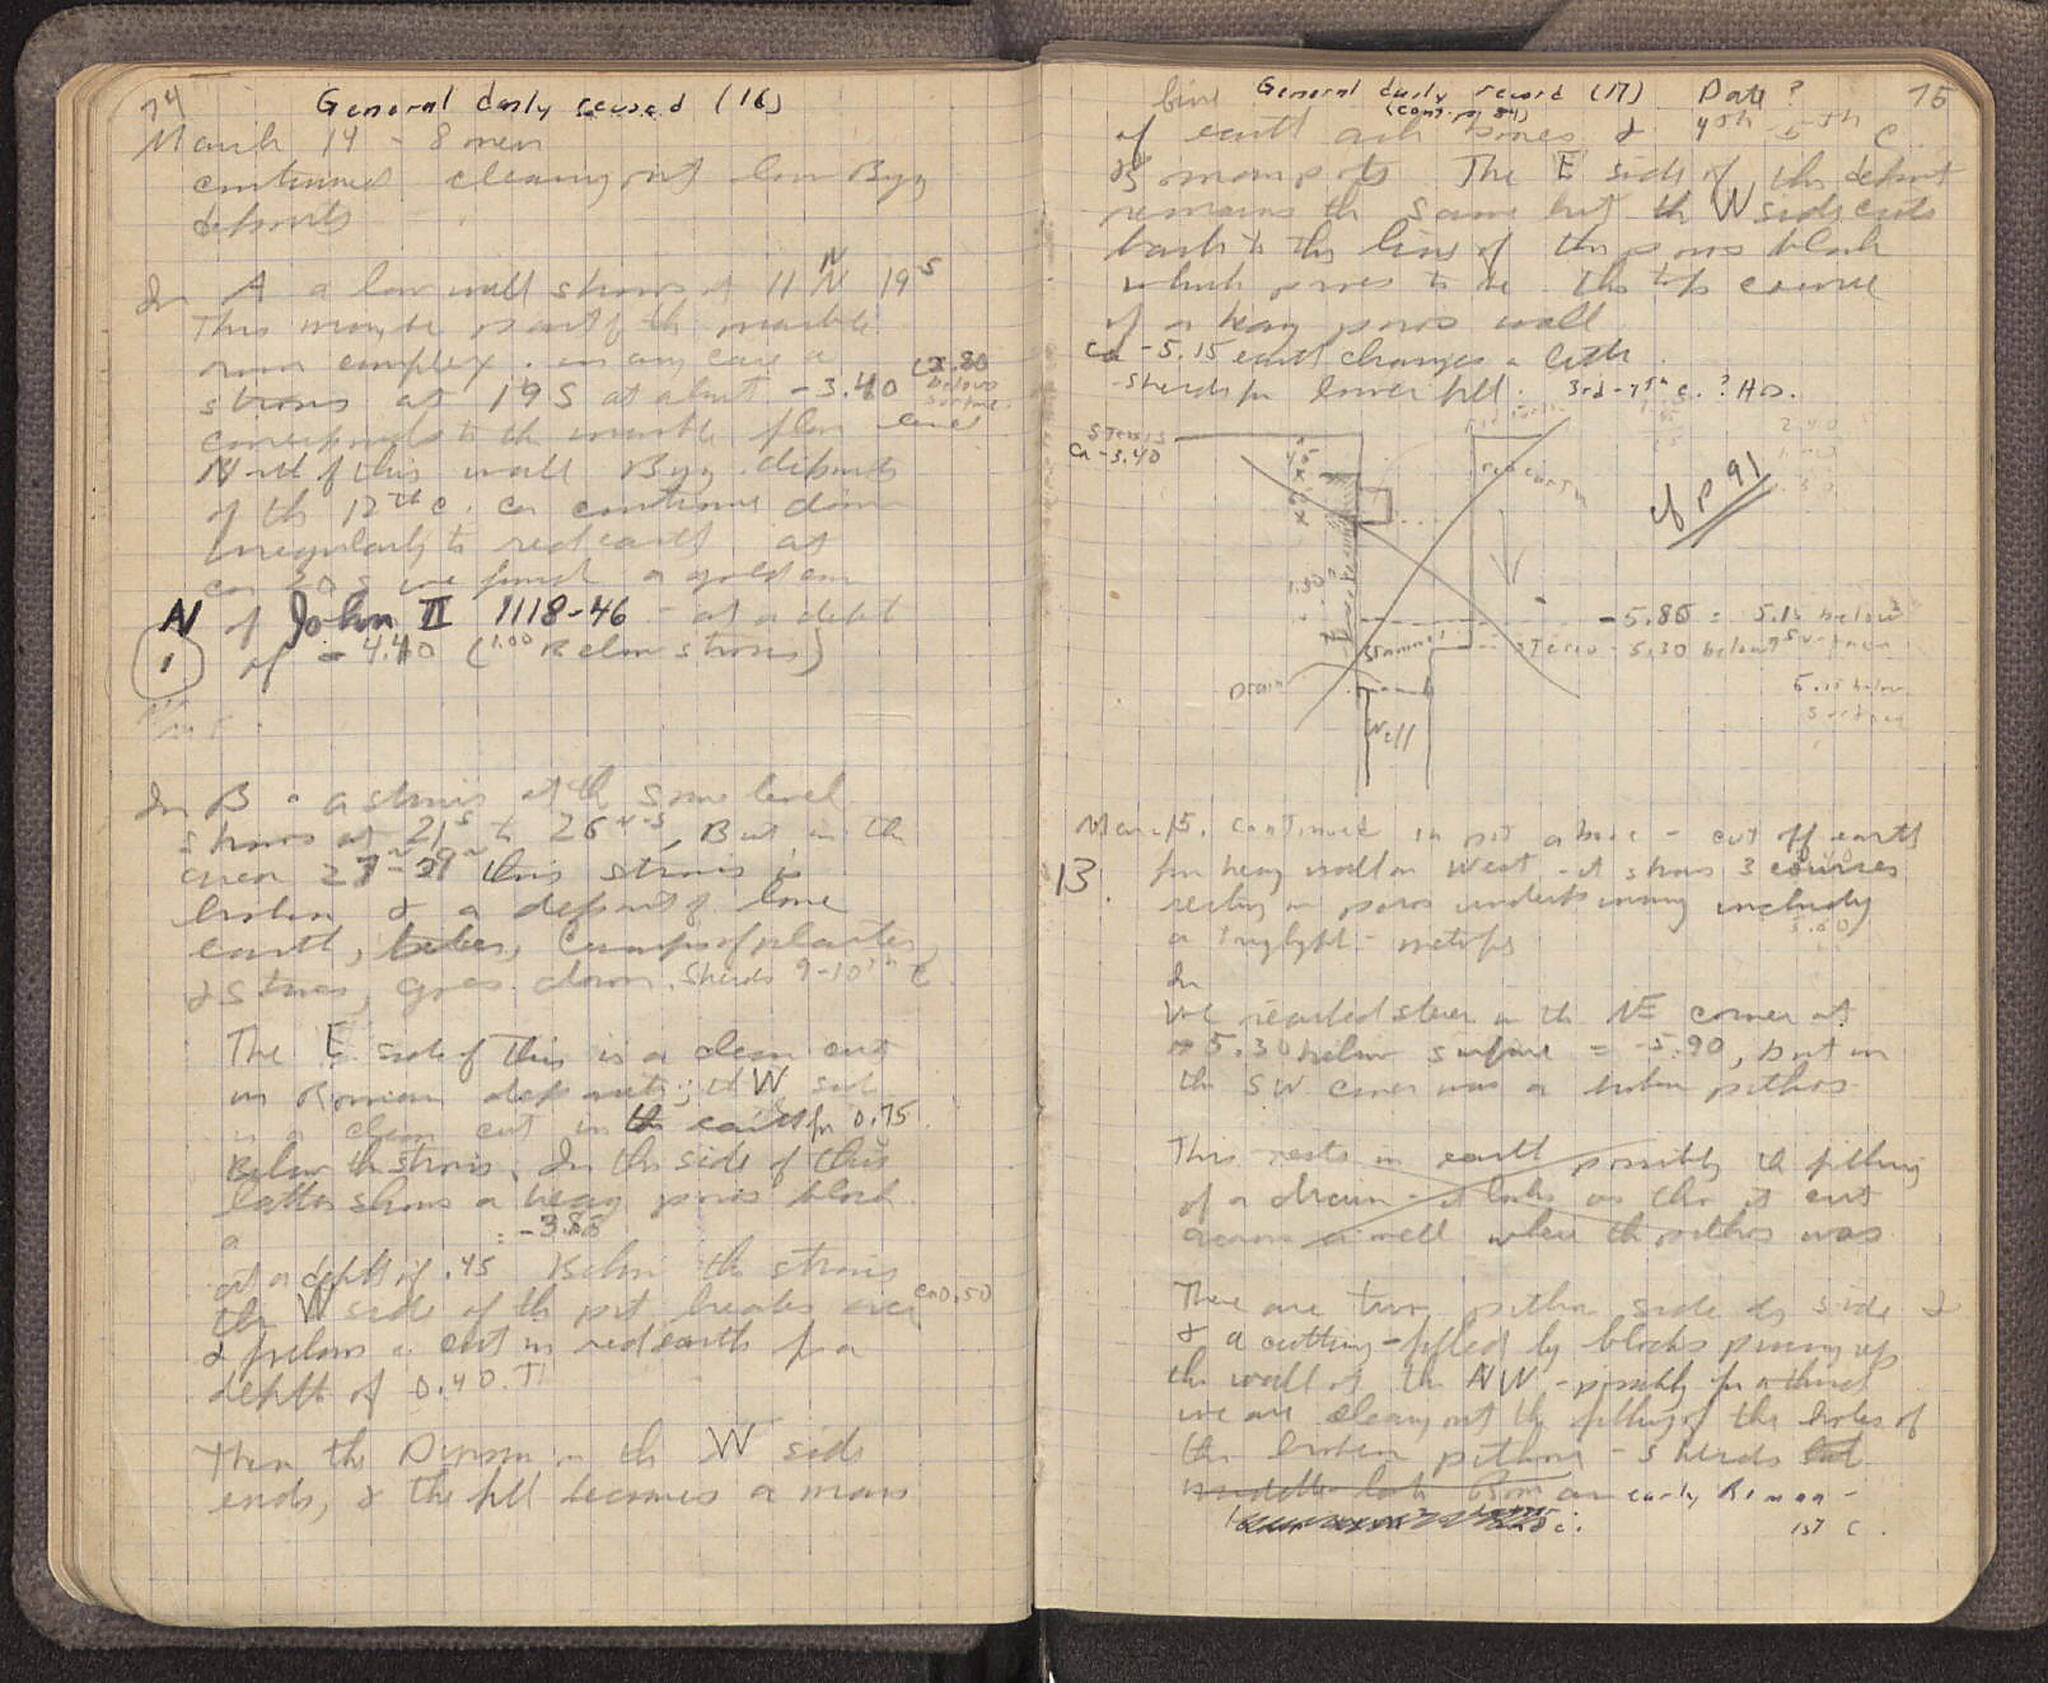 74
General daily record (16)
March 14 - 8 men
continued cleaning out low Byz
deposits
In A a low wall shows at 11 N 19 S
This may be part of the marble
room complex. in any case a
stros at 19 S at about -3.40
below surface
corresponds to the marble floor level
North of this wall Byz. deposits
of the 12th c. continue down
irregularly to red earth at
ca 20 S we found a gold coin
N of John II 1118-46 - at a depth
1
of -4.40 (1.00 Below stros)
In B a stros at the same level
shows at 21 S to 26, But in the
area 27-29 this stros is
broken & a deposit of loose
earth, tiles, lumps of plaster,
& stones, goes down. Sherds 9-10th C.
The E side of this is a clean cut
in Roman deposits; the W side
is a clean cut in the earth for 0.75
Below the stros. In the side of this
latter shows a heavy poros block
= -3.85
at a depth of .45 Below the stros
the W side of the pit breaks ca 0.50
& follows a cut in red earth for a
depth of 0.40. T
Then the Division in the W side
ends, & the fill becomes a mass
General daily record (17) Date ?
75
(cont. p 84)
of earth ash bones & 4th-5th C.
Roman pots The E side of this deposit
remains the same but the W side cuts
back to the line of the poros block
which proves to be the top course
of a heavy poros wall
Ca -5.15 earth changes a little.
-Sherds for lower fill. 3rd-4th c. ? HO.
Stros is
Ca -3.40
.45
red earth
cf p 91
1.30
-5.85 = 5.15 below
Stereo - 5.30 below surface
5.15 below
surface
Drain
Well
Mar. 15. continued in pit above - cut off earth
13.
for heavy wall on West - it shows 3 courses
resting on poros underpinning including
a triglyph - metope
In
We reached stereo in the NE corner at
5.30 below surface = -5.90, but in
the SW corner was a broken pithos
This rests in earth possibly the filling
of a drain - it looks as tho it cut
across a well where the pithos was
There are two pithoi side by side &
& a cutting - filled by blocks
the wall at the NW - possibly for a third
we are cleaning out the filling of the holes of
the broken pithoi - sherds but
middle late Roman early Roman -
1st C.